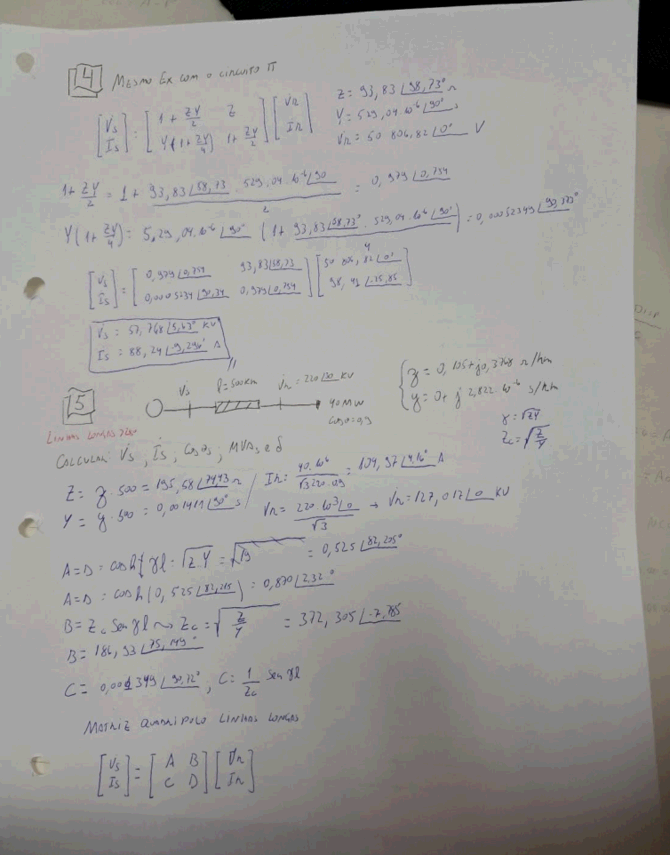 4 MESMO EX COM O CIRCUITO π
[Vs Is] = [1 + ZY/2 Z Y(1+ZY/4) 1+ZY/2] [Vr Ir]
Z = 93,83 ∠58,73° Ω
Y = 529,04.10⁻⁶ ∠90° s
Vr = 50 806,82 ∠0° V
1+ ZY/2 = 1 + 93,83∠58,73 . 529,04.10⁻⁶ ∠90 / 2 = 0,979 ∠0,754
Y(1+ ZY/4) = 5,29,04.10⁻⁶ ∠90° (1+ 93,83∠58,73° . 529,04.10⁻⁶ ∠90° / 4) = 0,0005234 ∠90,373°
[Vs Is] = [0,979∠0,754 93,83∠58,73 0,0005234 ∠90,34 0,979∠0,754] [50 806,82∠0° 98,41 ∠-25,85]
Vs = 57,768∠5,63° KV
Is = 88,24 ∠-9,296° A
5 Vs l=500km Vr = 220∠0 KV
40 MW
cosφ=0,9
z = 0,105+j0,3768 Ω/km
y = 0+ j 2,822.10⁻⁶ s/km
γ = √zy
Zc = √z/y
LINHAS LONGAS
CALCULAR Vs, Is, cosφs, MVAs e δ
Z = z.500 = 195,58∠74,43 Ω
Y = y.500 = 0,001411 ∠90° s
Ir = 40.10⁶ / √3.220.0,9 = 104,97 A
Vr = 220.10³∠0 / √3 → Vr = 127,017∠0 KV
A=D = cosh γl = √Z.Y = 0,525 ∠82,215°
A=D = cosh (0,525 ∠82,215) = 0,870 ∠2,32°
B = Zc Sen γl → Zc = √Z/Y = 372,305 ∠-7,785
B = 186,93 ∠75,149°
C = 0,001349 ∠90,72°, C = 1/Zc Sen γl
MATRIZ QUADRIPOLO LINHAS LONGAS
[Vs Is] = [A B C D] [Vr Ir]